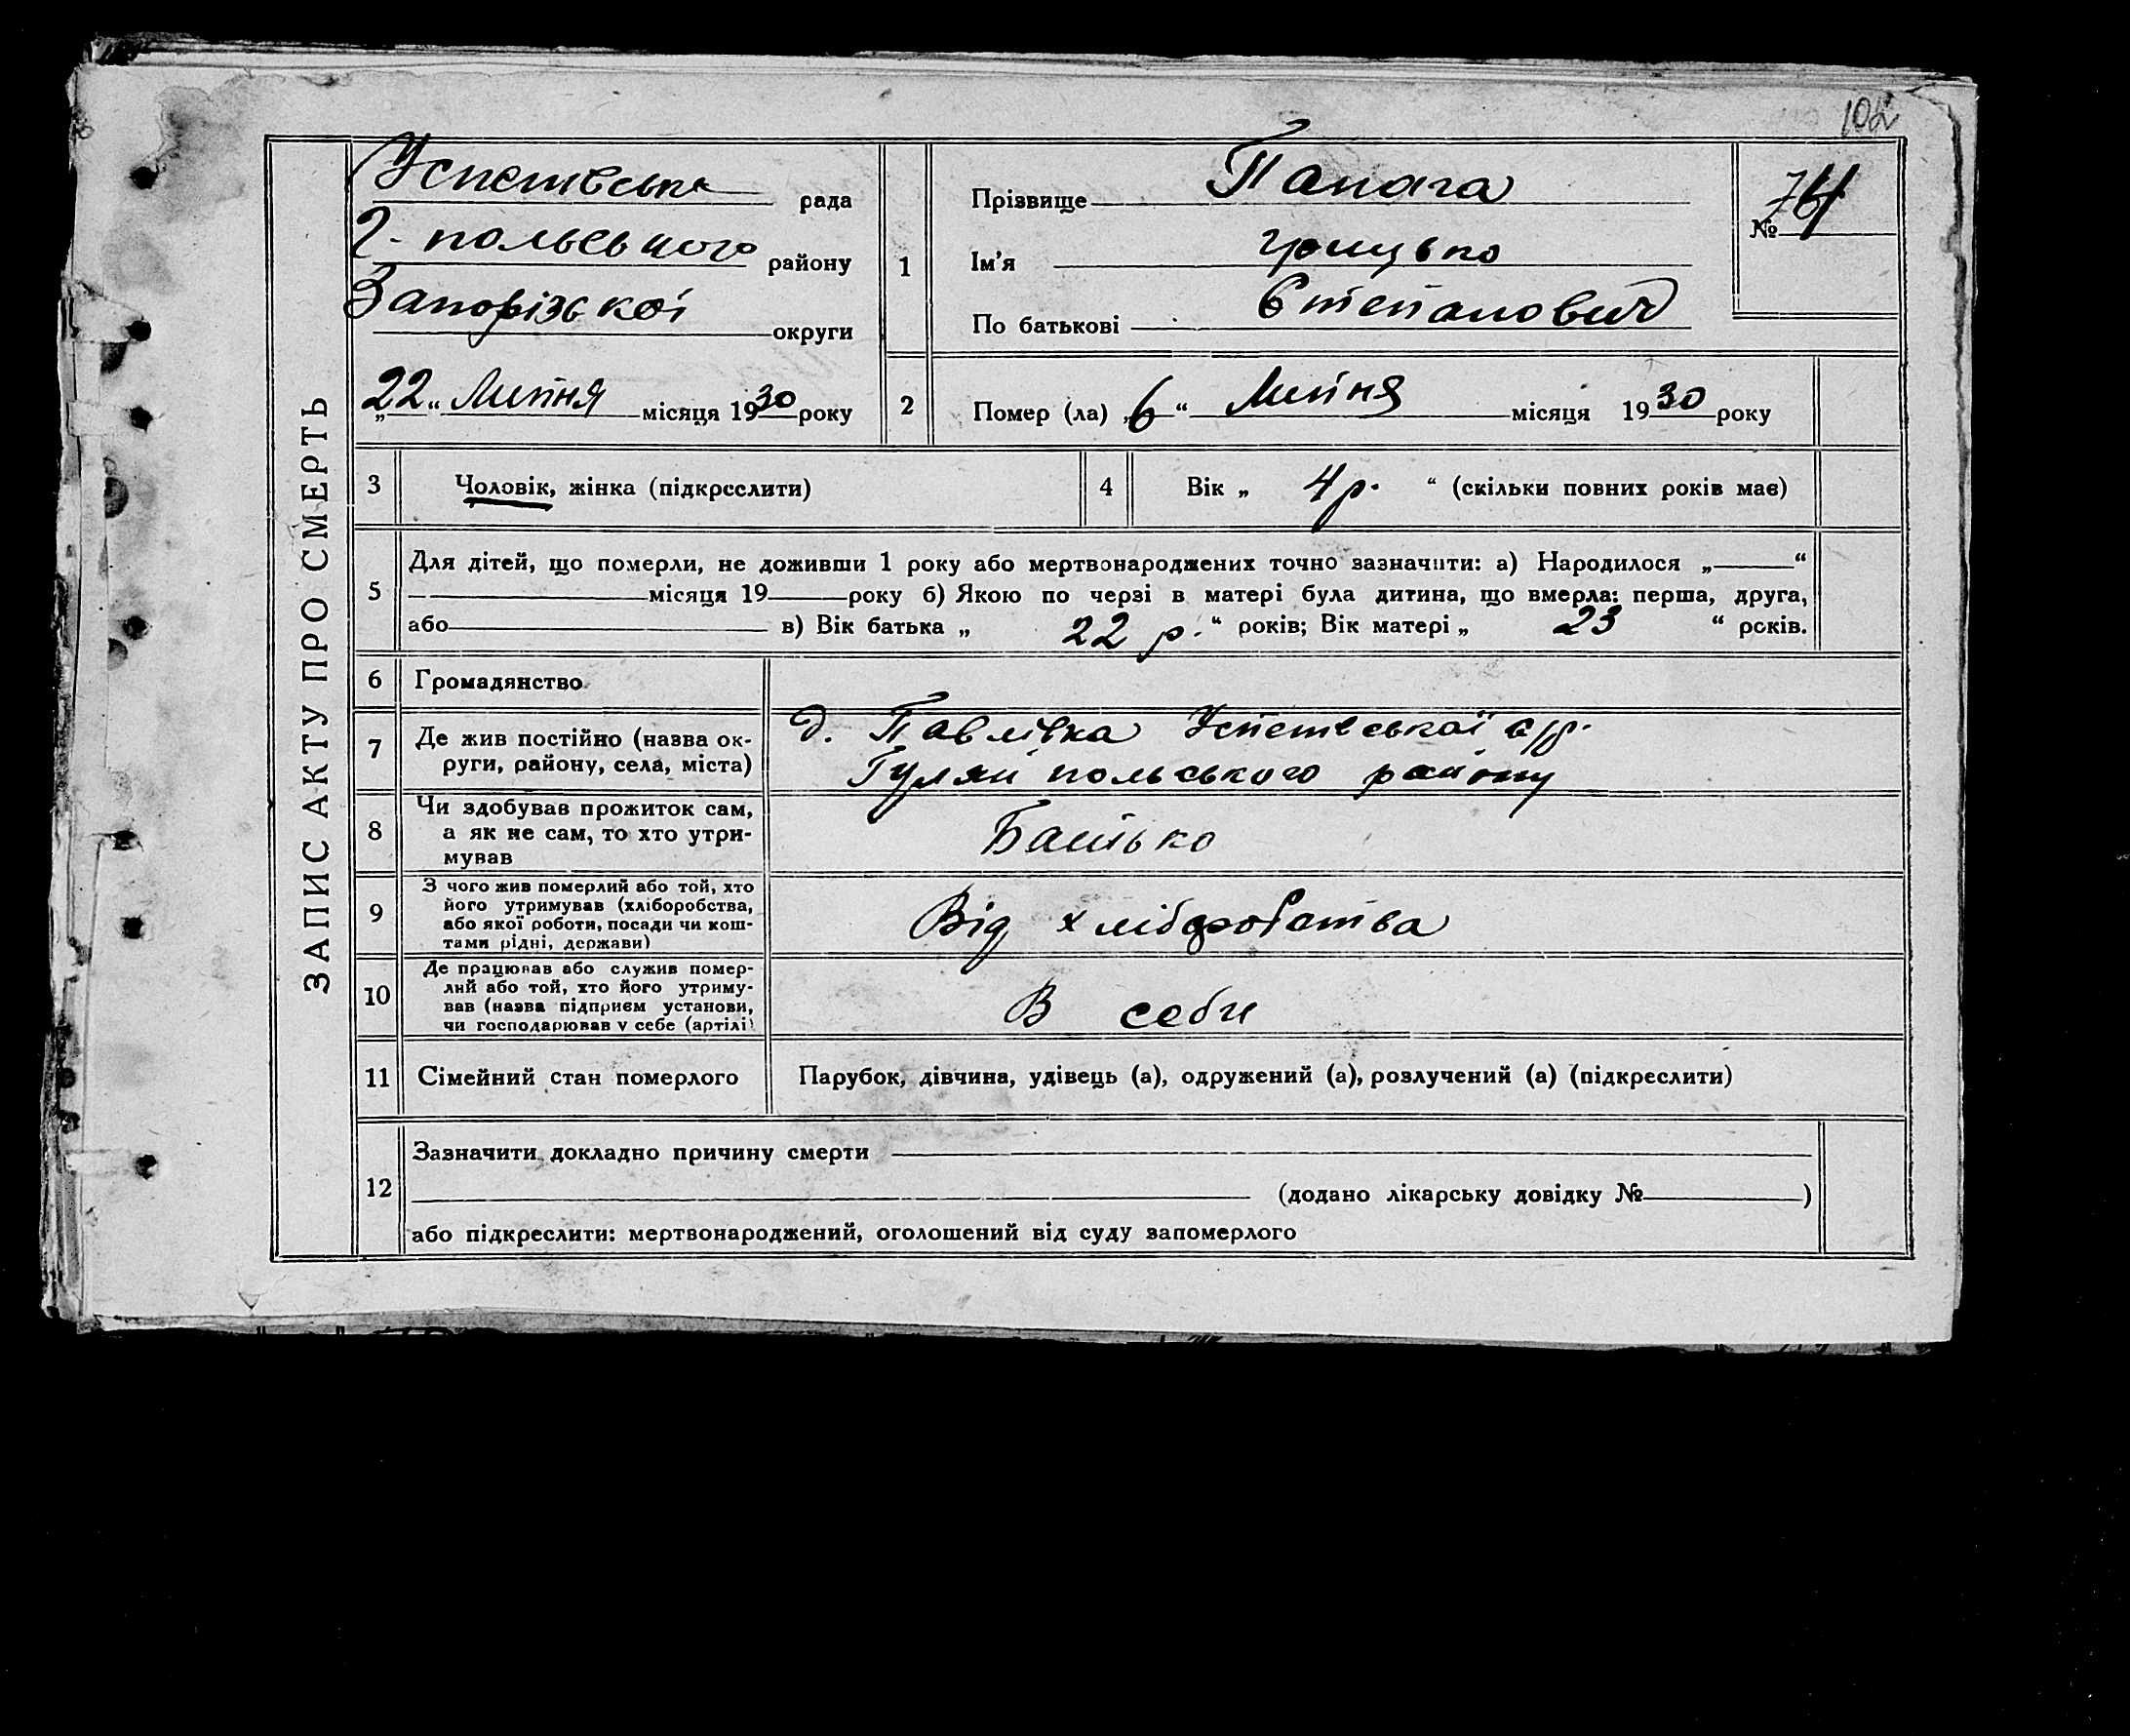 102
ЗАПИС АКТУ ПРО СМЕРТЬ
Успенівська рада
Г-польського району
Запорізької округи
„22“ Липня місяця 1930 року
1
Прізвище Папага
Ім'я Грицько
По батькові Степанович
№ 74
2 Помер (ла) „6“ Липня місяця 1930 року
3 Чоловік, жінка (підкреслити)
4 Вік „ 4 р. “ (скільки повних років має)
5 Для дітей, що померли, не доживши 1 року або мертвонароджених точно зазначити: а) Народилося „ “
місяця 19 року б) Якою по черзі в матері була дитина, що вмерла: перша, друга,
або в) Вік батька „ 22 р. “ років; Вік матері „ 23 “ років.
6 Громадянство
7 Де жив постійно (назва ок-
руги, району, села, міста)
д. Павлівка Успенівської с/р.
Гуляй польського району
8 Чи здобував прожиток сам,
а як не сам, то хто утри-
мував
Батько
9 З чого жив померлий або той, хто
його утримував (хліборобства,
або якої роботи, посади чи кош-
тами рідні, держави)
Від хліборобства
10 Де працював або служив помер-
лий або той, хто його утриму-
вав (назва підприєм установи,
чи господарював у себе (артілі)
В себи
11 Сімейний стан померлого
Парубок, дівчина, удівець (а), одружений (а), розлучений (а) (підкреслити)
12 Зазначити докладно причину смерти
(додано лікарську довідку № )
або підкреслити: мертвонароджений, оголошений від суду запомерлого